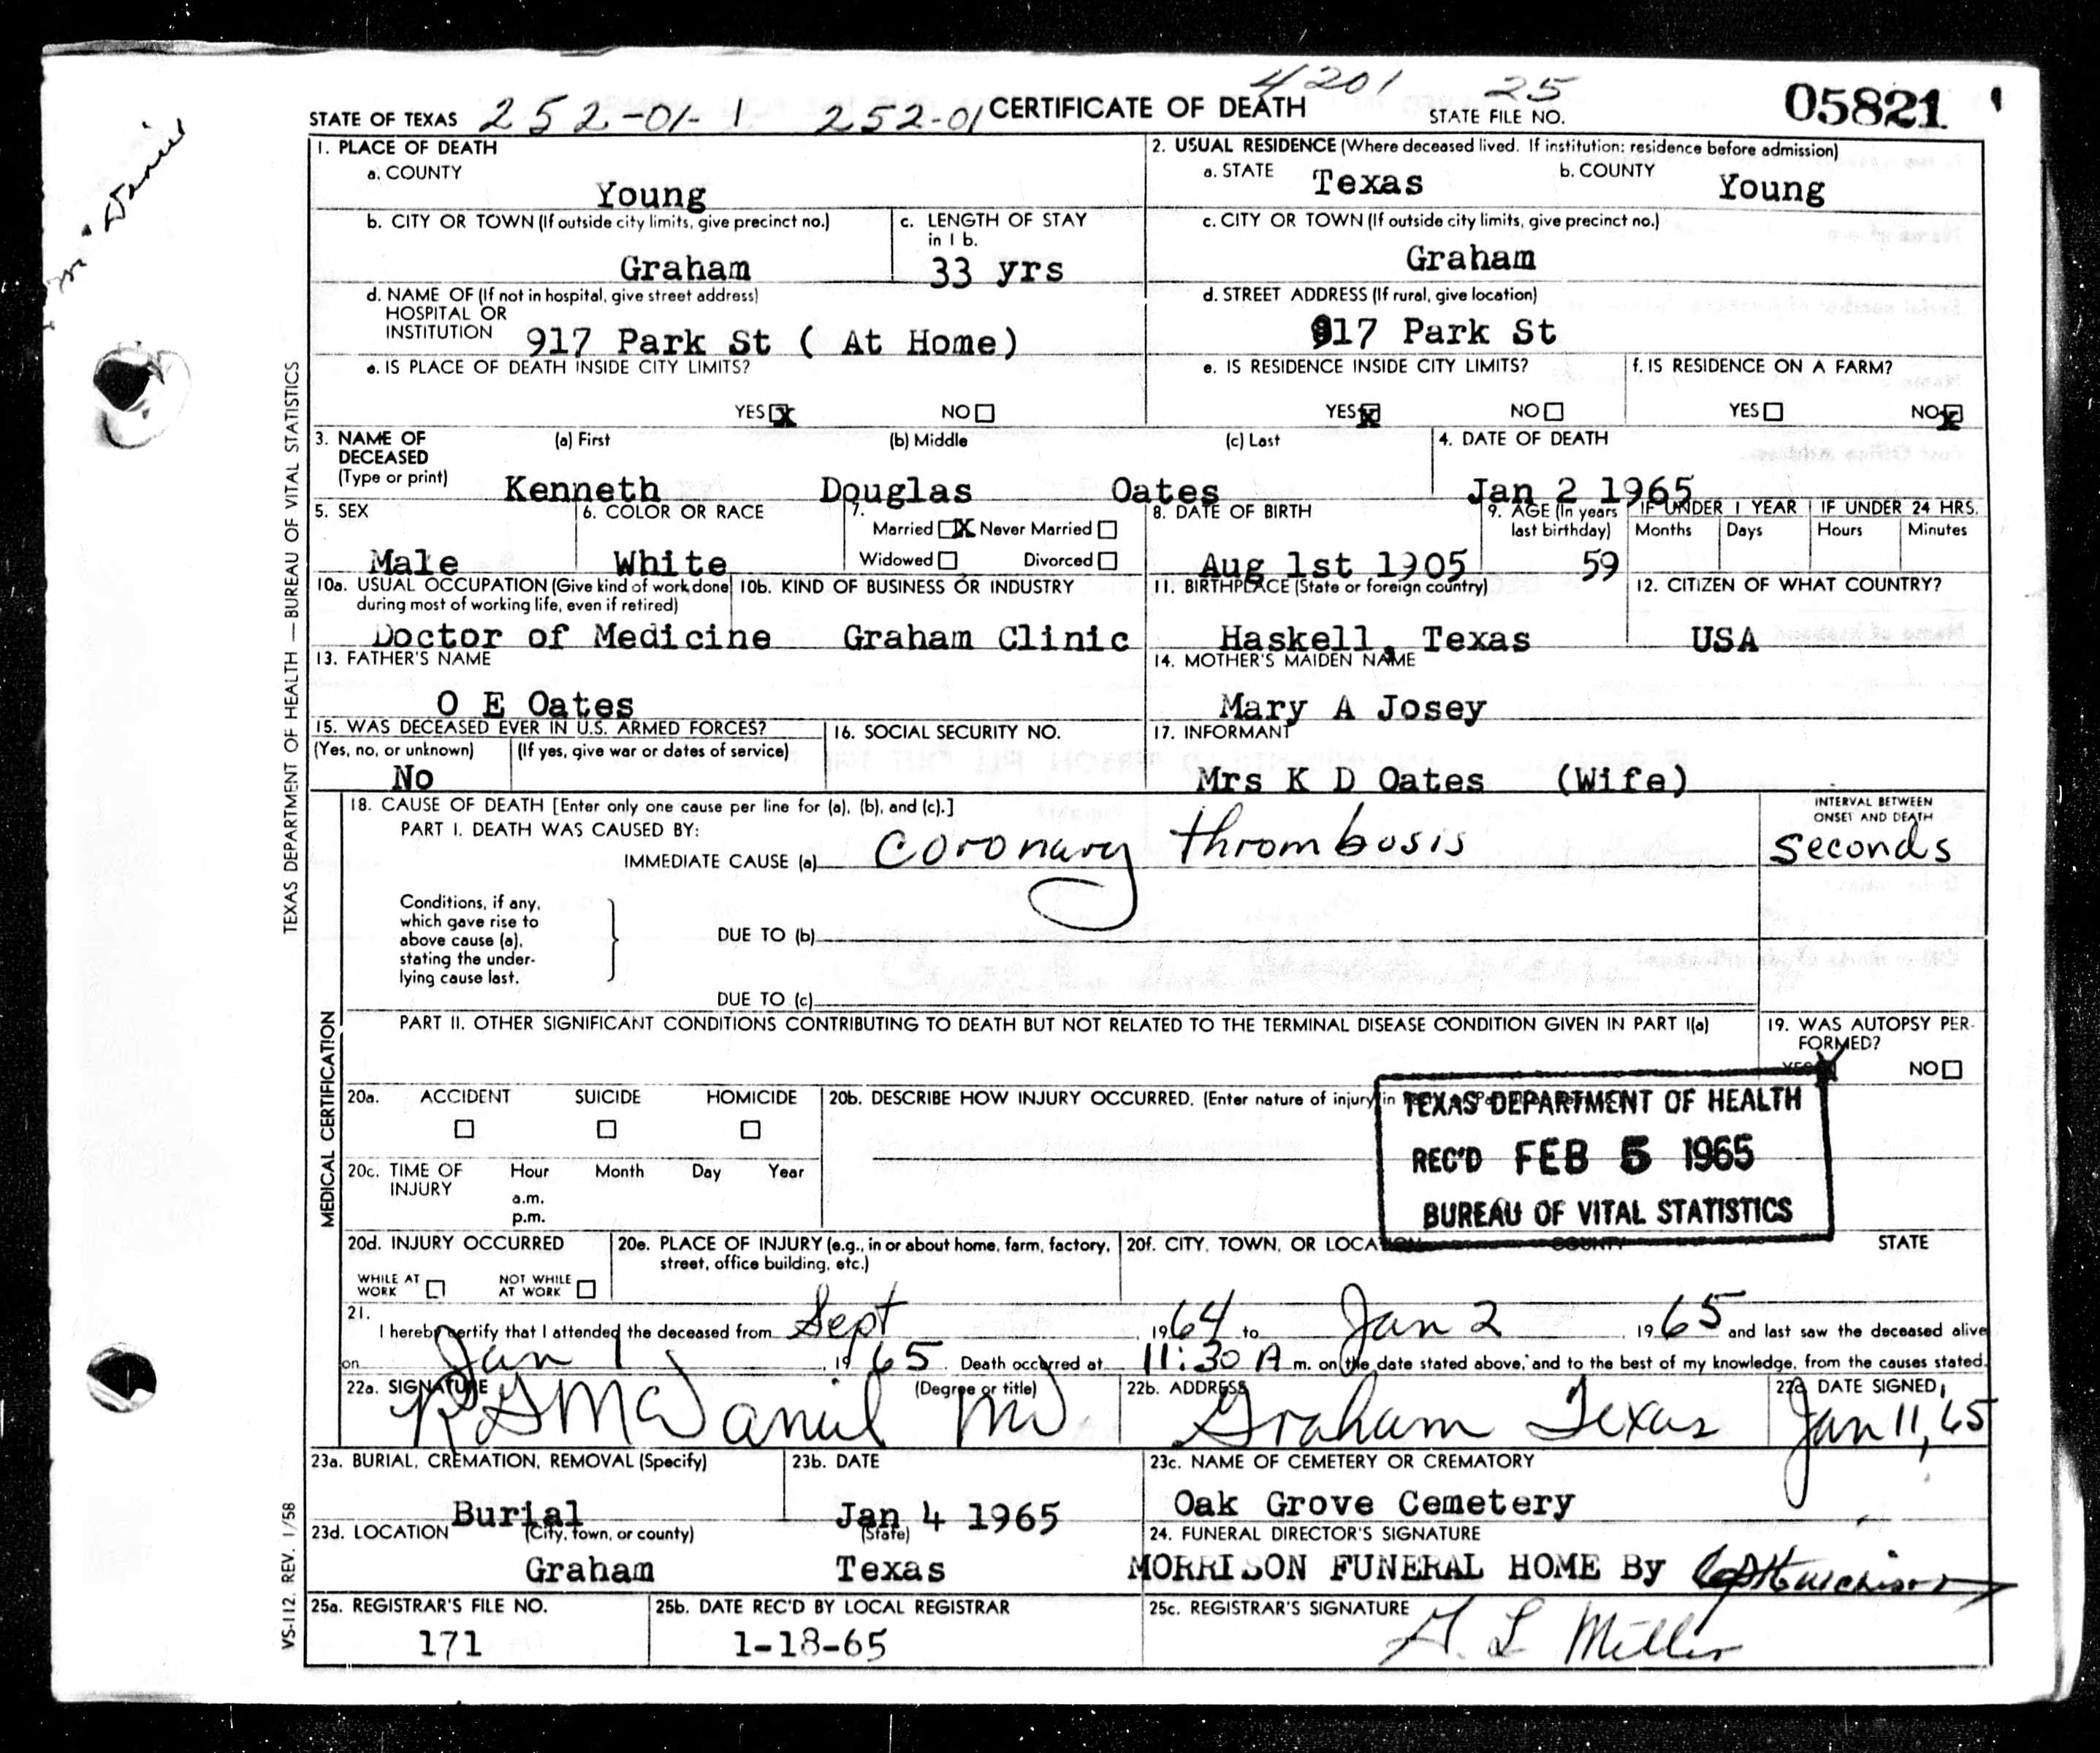 4201 25
STATE OF TEXAS 252-01-1 252-01 CERTIFICATE OF DEATH STATE FILE NO. 05821
1. PLACE OF DEATH
a. COUNTY
Young
2. USUAL RESIDENCE (Where deceased lived. If institution: residence before admission)
a. STATE Texas b. COUNTY Young
b. CITY OR TOWN (If outside city limits, give precinct no.)
Graham
c. LENGTH OF STAY
in 1 b.
33 yrs
c. CITY OR TOWN (If outside city limits, give precinct no.)
Graham
d. NAME OF (If not in hospital, give street address)
HOSPITAL OR
INSTITUTION 917 Park St ( At Home)
d. STREET ADDRESS (If rural, give location)
917 Park St
e. IS PLACE OF DEATH INSIDE CITY LIMITS?
YES X NO
e. IS RESIDENCE INSIDE CITY LIMITS?
YES X NO
f. IS RESIDENCE ON A FARM?
YES NO X
3. NAME OF
DECEASED
(Type or print)
(a) First (b) Middle (c) Last
Kenneth Douglas Oates
4. DATE OF DEATH
Jan 2 1965
5. SEX
Male
6. COLOR OR RACE
White
7.
Married X Never Married
Widowed Divorced
8. DATE OF BIRTH
Aug 1st 1905
9. AGE (In years
last birthday)
59
IF UNDER 1 YEAR
Months Days
IF UNDER 24 HRS.
Hours Minutes
10a. USUAL OCCUPATION (Give kind of work done
during most of working life, even if retired)
Doctor of Medicine
10b. KIND OF BUSINESS OR INDUSTRY
Graham Clinic
11. BIRTHPLACE (State or foreign country)
Haskell, Texas
12. CITIZEN OF WHAT COUNTRY?
USA
13. FATHER'S NAME
O E Oates
14. MOTHER'S MAIDEN NAME
Mary A Josey
15. WAS DECEASED EVER IN U.S. ARMED FORCES?
(Yes, no, or unknown) (If yes, give war or dates of service)
No
16. SOCIAL SECURITY NO.
17. INFORMANT
Mrs K D Oates (Wife)
18. CAUSE OF DEATH [Enter only one cause per line for (a), (b), and (c).]
PART I. DEATH WAS CAUSED BY:
IMMEDIATE CAUSE (a) coronary thrombosis
INTERVAL BETWEEN
ONSET AND DEATH
seconds
Conditions, if any,
which gave rise to
above cause (a),
stating the under-
lying cause last.
DUE TO (b)
DUE TO (c)
PART II. OTHER SIGNIFICANT CONDITIONS CONTRIBUTING TO DEATH BUT NOT RELATED TO THE TERMINAL DISEASE CONDITION GIVEN IN PART I(a)
19. WAS AUTOPSY PER-
FORMED?
YES X NO
20a. ACCIDENT SUICIDE HOMICIDE
20b. DESCRIBE HOW INJURY OCCURRED. (Enter nature of injury in
TEXAS DEPARTMENT OF HEALTH
REC'D FEB 5 1965
BUREAU OF VITAL STATISTICS
20c. TIME OF
INJURY
Hour Month Day Year
a.m.
p.m.
20d. INJURY OCCURRED
WHILE AT
WORK
NOT WHILE
AT WORK
20e. PLACE OF INJURY (e.g., in or about home, farm, factory,
street, office building, etc.)
20f. CITY, TOWN, OR LOCATION COUNTY STATE
21.
I hereby certify that I attended the deceased from Sept, 1964 to Jan 2, 1965 and last saw the deceased alive
on Jan 1, 1965. Death occurred at 11:30 A m. on the date stated above, and to the best of my knowledge, from the causes stated.
22a. SIGNATURE (Degree or title)
R G McDaniel MD
22b. ADDRESS
Graham Texas
22c. DATE SIGNED
Jan 11, 65
23a. BURIAL, CREMATION, REMOVAL (Specify)
Burial
23b. DATE
Jan 4 1965
23c. NAME OF CEMETERY OR CREMATORY
Oak Grove Cemetery
23d. LOCATION (City, town, or county) (State)
Graham Texas
24. FUNERAL DIRECTOR'S SIGNATURE
MORRISON FUNERAL HOME By Hutchison
25a. REGISTRAR'S FILE NO.
171
25b. DATE REC'D BY LOCAL REGISTRAR
1-18-65
25c. REGISTRAR'S SIGNATURE
Miller
TEXAS DEPARTMENT OF HEALTH — BUREAU OF VITAL STATISTICS
MEDICAL CERTIFICATION
VS-112, REV. 1/58